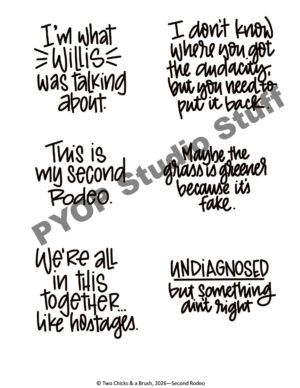 I'm what
WILLIS
was talking
about.
I don't know
where you got
the audacity,
but you need to
put it back.
This is
my second
Rodeo.
Maybe the
grass is greener
because it's
fake.
We're all
in this
together...
like hostages.
UNDIAGNOSED
but something
ain't right
PYOP Studio Stuff
© Two Chicks & a Brush, 2026—Second Rodeo